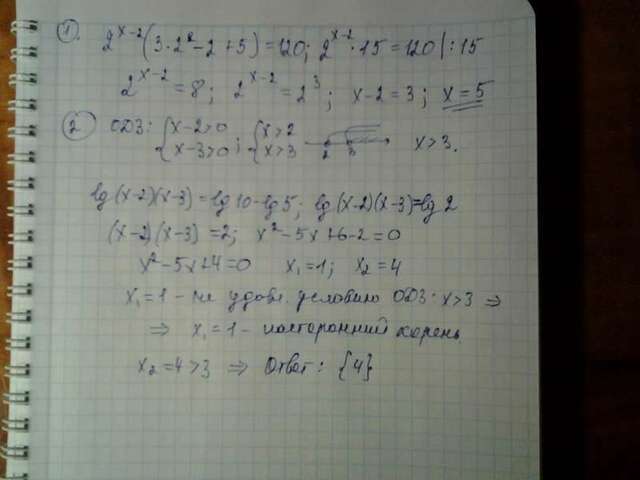 1. 2^{x-2}(3·2²-2+5)=120; 2^{x-2}·15=120|:15
2^{x-2}=8; 2^{x-2}=2³; x-2=3; x=5
2. ОДЗ: {x-2>0 {x>2 2 3 x>3.
{x-3>0; {x>3
lg(x-2)(x-3)=lg10-lg5; lg(x-2)(x-3)=lg2
(x-2)(x-3)=2; x²-5x+6-2=0
x²-5x+4=0 x₁=1; x₂=4
x₁=1 - не удовл. условию ОДЗ: x>3 ⇒
⇒ x₁=1 - посторонний корень
x₂=4>3 ⇒ Ответ: {4}